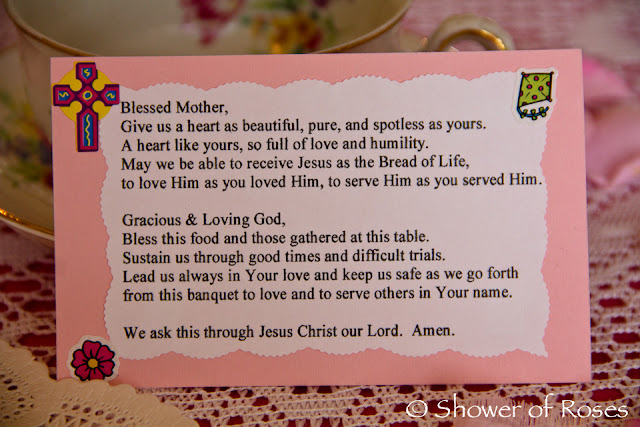 Blessed Mother,
Give us a heart as beautiful, pure, and spotless as yours.
A heart like yours, so full of love and humility.
May we be able to receive Jesus as the Bread of Life,
to love Him as you loved Him, to serve Him as you served Him.
Gracious & Loving God,
Bless this food and those gathered at this table.
Sustain us through good times and difficult trials.
Lead us always in Your love and keep us safe as we go forth
from this banquet to love and to serve others in Your name.
We ask this through Jesus Christ our Lord.  Amen.
© Shower of Roses